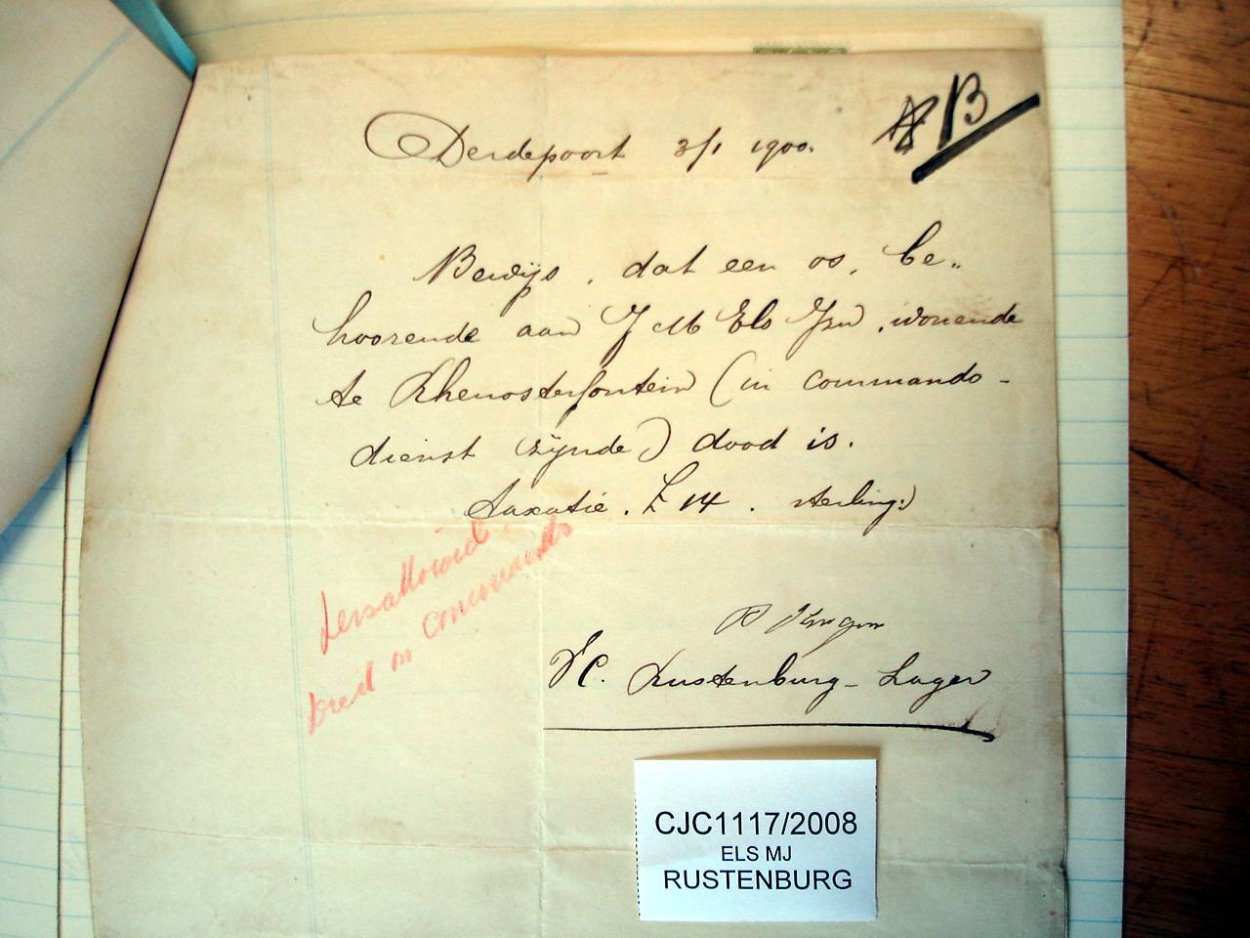 B
Derdepoort 3/1 1900.
Bewijs, dat een os, be„
hoorende aan J M Els Jzn, wonende
te Rhenosterfontein (in commando-
dienst zijnde) dood is.
taxatie. £ 14. sterling.)
Died on commando
V.C. Rustenburg-Lager
CJC1117/2008
ELS MJ
RUSTENBURG